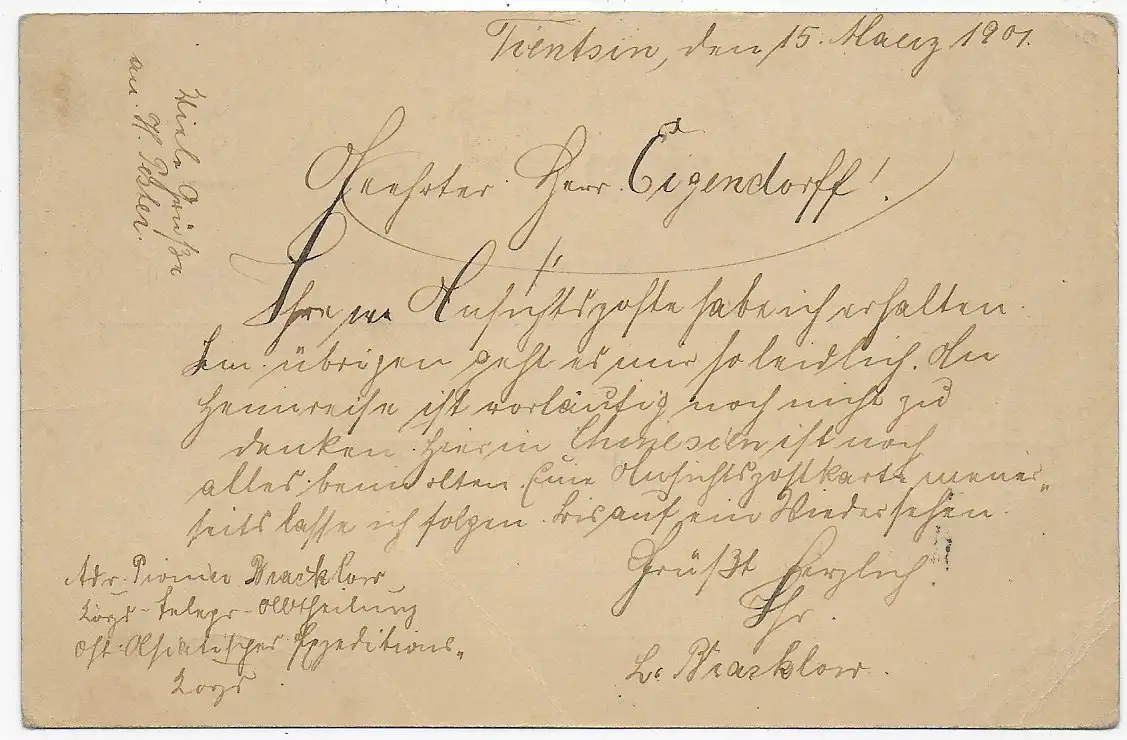 Tientsin, den 15. Maerz 1901.
Viele Grüße
an H. Pester.
Geehrter Herr Eigendorff!
Ihre Ansichtsposte habe ich erhalten.
Im übrigen geht es mir so leidlich. An
Heimreise ist vorläufig noch nicht zu
denken. Hier in Chinesien ist noch
alles beim alten. Eine Ansichtspostkarte meiner„
seits lasse ich folgen. Bis auf ein Wiedersehen.
Grüßt Herzlich.
Ihr.
L. Bracklow.
Adr. Pionier Bracklow
Korps-Telegr-Abtheilung
Ost-Asiatisches Expeditions„
Korps